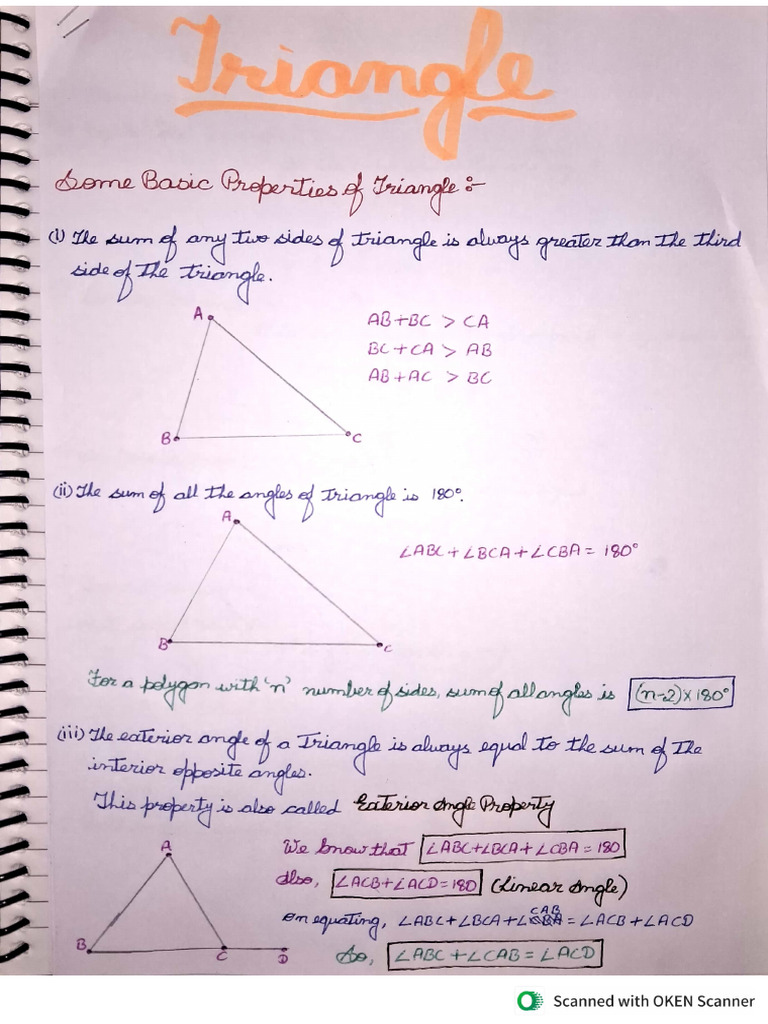 Triangle
Some Basic Properties of Triangle :-
(i) The sum of any two sides of triangle is always greater than the third
side of the triangle.
A
AB+BC > CA
BC+CA > AB
AB+AC > BC
B
C
(ii) The sum of all the angles of triangle is 180°.
A
∠ABC+∠BCA+∠CBA = 180°
B
C
For a polygon with 'n' number of sides, sum of all angles is (n-2)×180°
(iii) The exterior angle of a Triangle is always equal to the sum of the
interior opposite angles.
This property is also called Exterior Angle Property
A
We know that ∠ABC+∠BCA+∠CBA = 180
Also, ∠ACB+∠ACD=180 (Linear Angle)
CAB
On equating, ∠ABC+∠BCA+∠CBA = ∠ACB+∠ACD
B
C
D
So, ∠ABC+∠CAB = ∠ACD
Scanned with OKEN Scanner